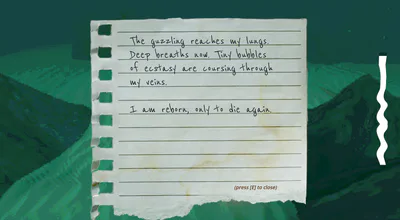 The guzzling reaches my lungs.
Deep breaths now. Tiny bubbles
of ecstasy are coursing through
my veins.
I am reborn, only to die again
(press [E] to close)